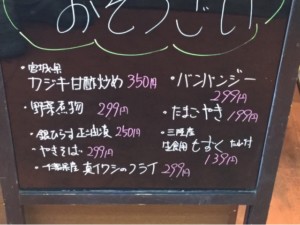 おそうざい
・宮城県
カジキ甘酢炒め 350円
・野菜煮物
299円
・銀ひらす正油漬 250円
・やきそば 299円
・千葉県産 真イワシのフライ 299円
・バンバンジー
299円
・たまごやき 199円
・三陸産
生食用 もずく
139円